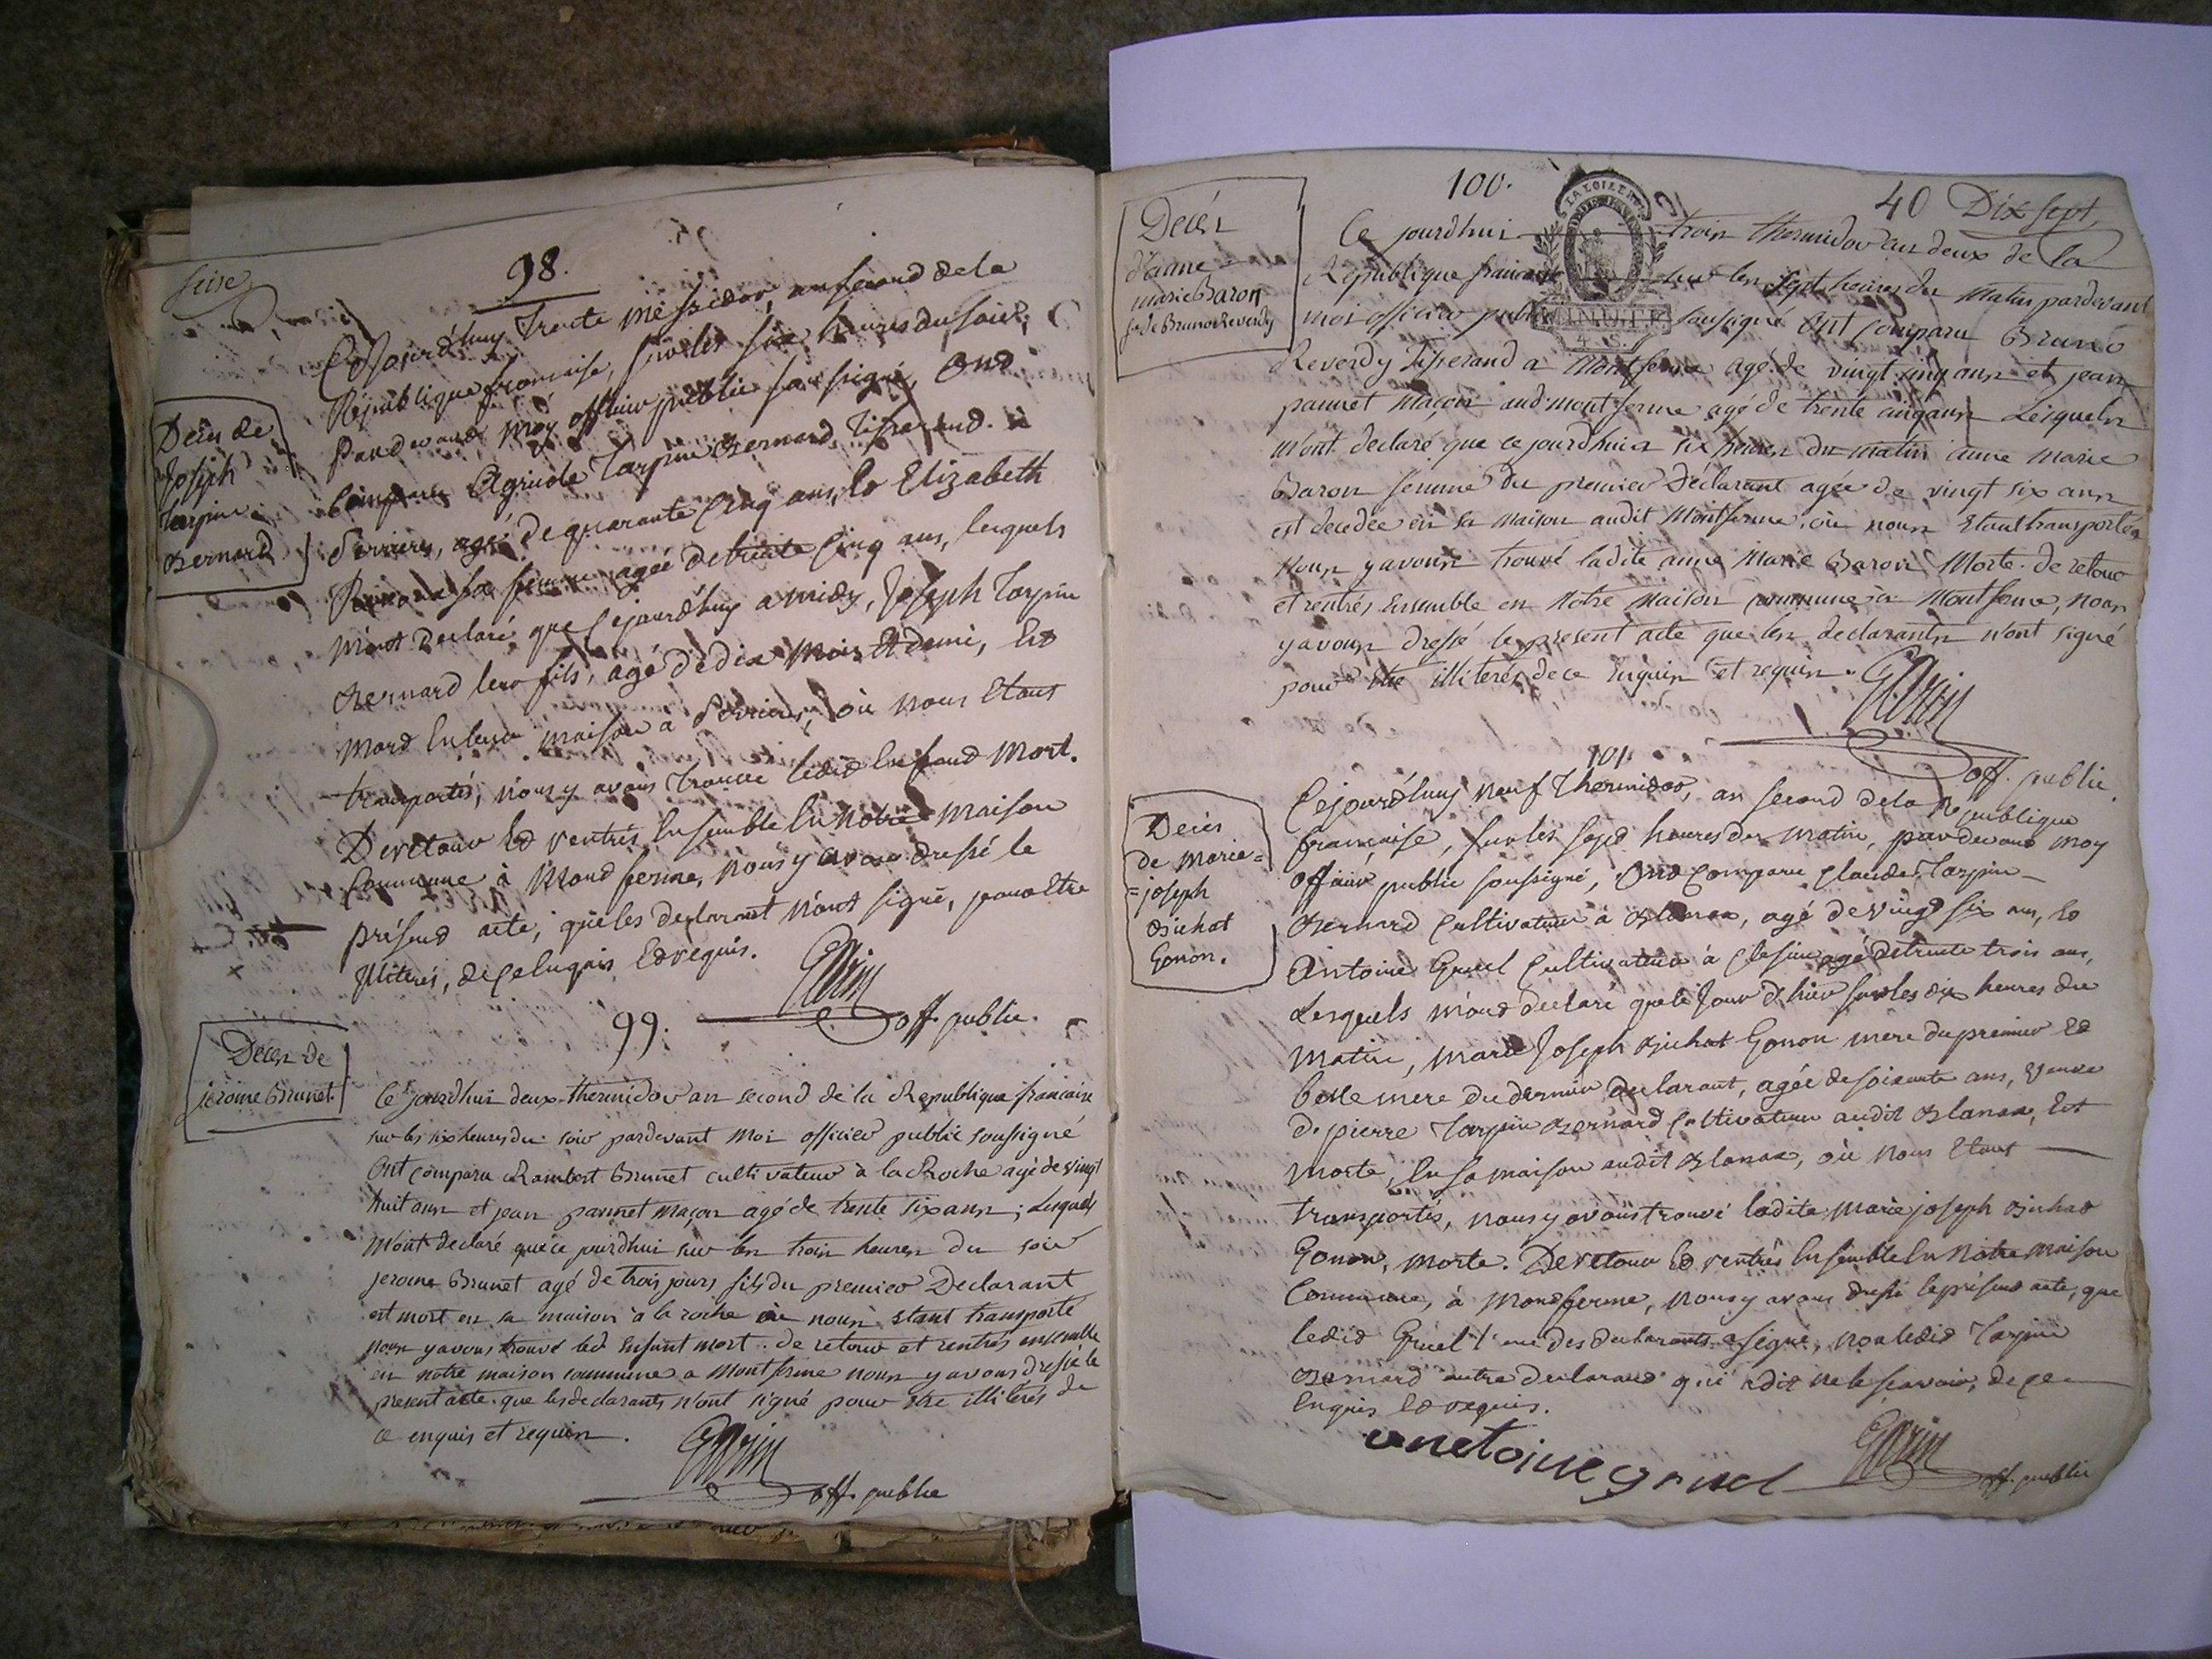 Seise
98.
Cejourd'huy trente messidor, an second de la
République française, sur les six heures du soir,
Pardevant moy officier public soussigné, Ont
Comparu Agricole Tarpin Bernard Tisserand a
Serrieres, agé de quarante cinq ans, Et Elizabeth
sa femme agée de trente cinq ans, lesquels
m'ont declaré que cejourd'huy a midy, Joseph Tarpin
Bernard leur fils, agé de dix mois et demi, Est
Mort En leur maison a Serrieres, où nous Etant
transportés, nous y avons trouvé ledit Enfant Mort.
De retour Et rentrés Ensemble En notre maison
Commune à Montferme, nous y avons dressé le
présent acte, que les declarant n'ont signé, pour Etre
illiterés, de ce Enquis Et requis.
off. public.
Deces de
Joseph
Tarpin
Bernard
99.
Deces de
jérome Brunet.
Ce jourdhui deux thermidor an second de la Republique francaise
sur les six heures du soir pardevant moi officier public soussigné
Ont comparu Rambert Brunet cultivateur à la Roche agé de vingt
huit ans et jean pannet maçon agé de trente six ans ; Lesquels
m'ont declaré que ce jourdhui sur les trois heures du soir
jerome Brunet agé de trois jours fils du premier Declarant
est mort en sa maison à la roche où nous étant transporté
nous y avons trouvé led Enfant mort. de retour et rentrés ensemble
en notre maison commune a Montferme nous y avons dressé le
present acte que les declarants n'ont signé pour etre illiterés de
ce enquis et requis.
off. public
100.
40 Dix sept
LA LOI
MINUTE
4. S.
Decès
d'anne
marie Baron
fe de Bruno Reverdy
Ce jourdhui trois thermidor an deux de la
République francaise sur les sept heures du matin pardevant
moi officier public soussigné ont comparu Bruno
Reverdy Tisserand a Montferme agé de vingt cinq ans et jean
pannet maçon aud. montferme agé de trente cinq ans Lesquels
m'ont declaré que ce jourdhui a six heures du matin anne marie
Baron femme du premier Déclarant agée de vingt six ans
est decedée en sa maison audit Montferme, où nous Etant transportés
nous y avons trouvé ladite anne Marie Baron Morte. de retour
et rentrés Ensemble en Notre Maison Commune a Montferme, nous
y avons dressé le present acte que les declarants n'ont signé
pour Etre illiterés de ce Enquis et requis.
off. public.
101.
Deces
de Marie=
=joseph
Bichat
Gonon.
Cejourd'huy neuf Thermidor, an second de la République
française, sur les sept heures du matin, pardevant moy
officier public soussigné, Ont Comparu Claude Tarpin
Bernard Cultivateur à Blanas, agé de vingt six ans, Et
Antoine Gruel Cultivateur à agé de trente trois ans,
Lesquels m'ont declaré que le Jour d'hier sur les dix heures du
matin, marie Joseph Bichat Gonon mere du premier Et
belle mere du dernier declarant, agée de soixante ans, veuve
de pierre Tarpin Bernard Cultivateur audit Blanas, Est
morte, En sa maison audit Blanas, où nous Etant
transportés, nous y avons trouvé ladite marie joseph Bichat
Gonon, morte. De retour Et rentrés Ensemble En Notre maison
Commune, à Montferme, nous y avons dressé le présent acte, que
ledit Gruel l'un des declarants a signé, non ledit Tarpin
Bernard autre declarant qui a dit ne le scavoir, de ce
Enquis Et requis.
anetoine gruel
off. public